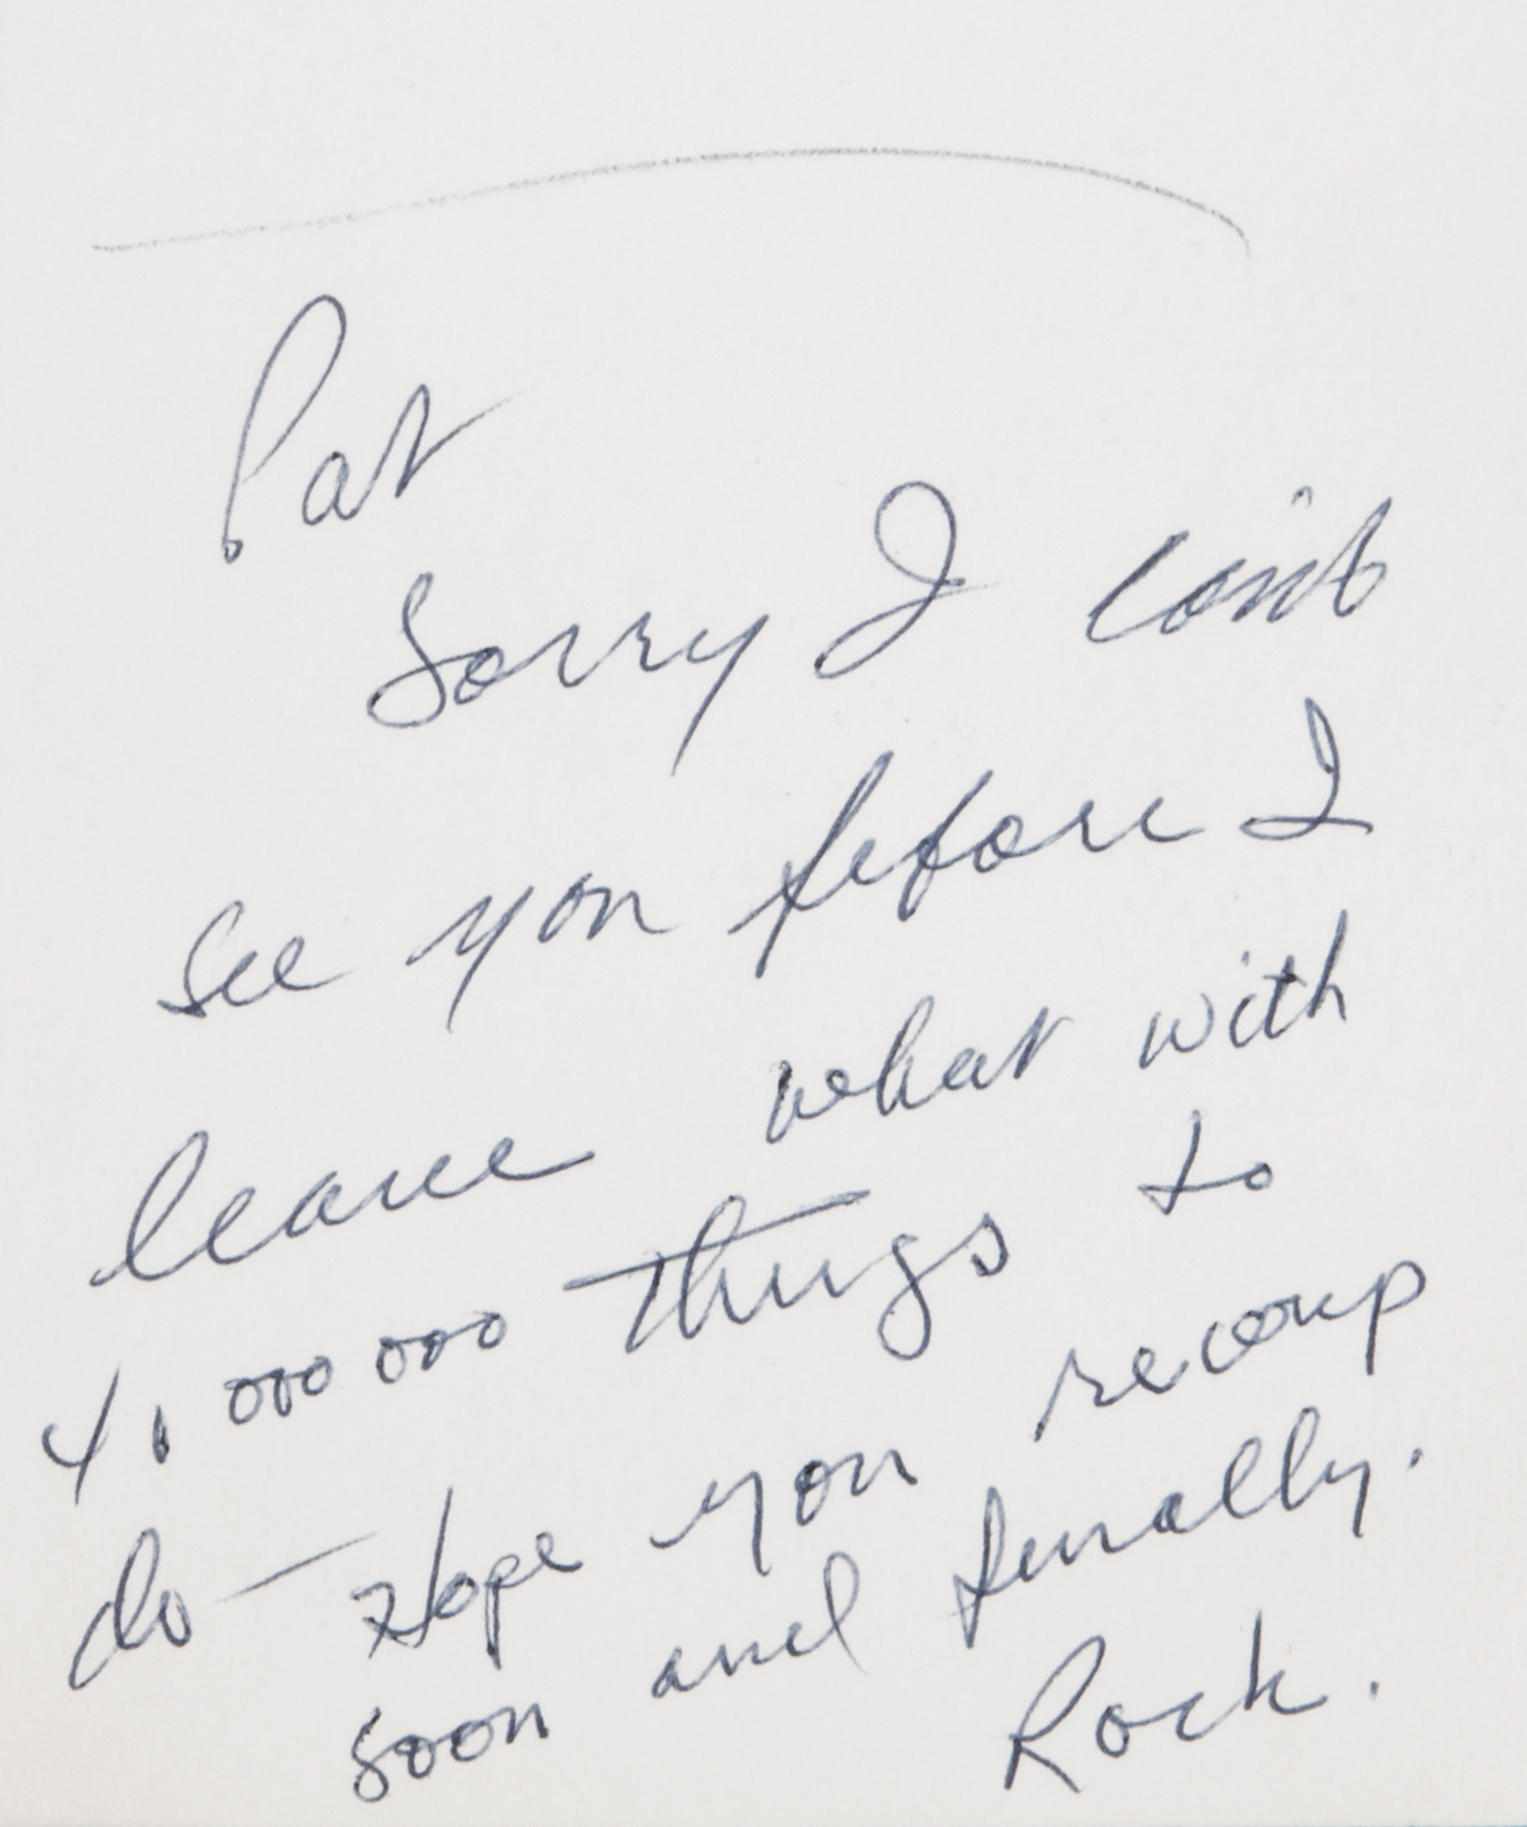 Pat
Sorry I can't
see you before I
leave what with
4,000000 things to
do - Hope you recoup
soon and finally.
Rock.